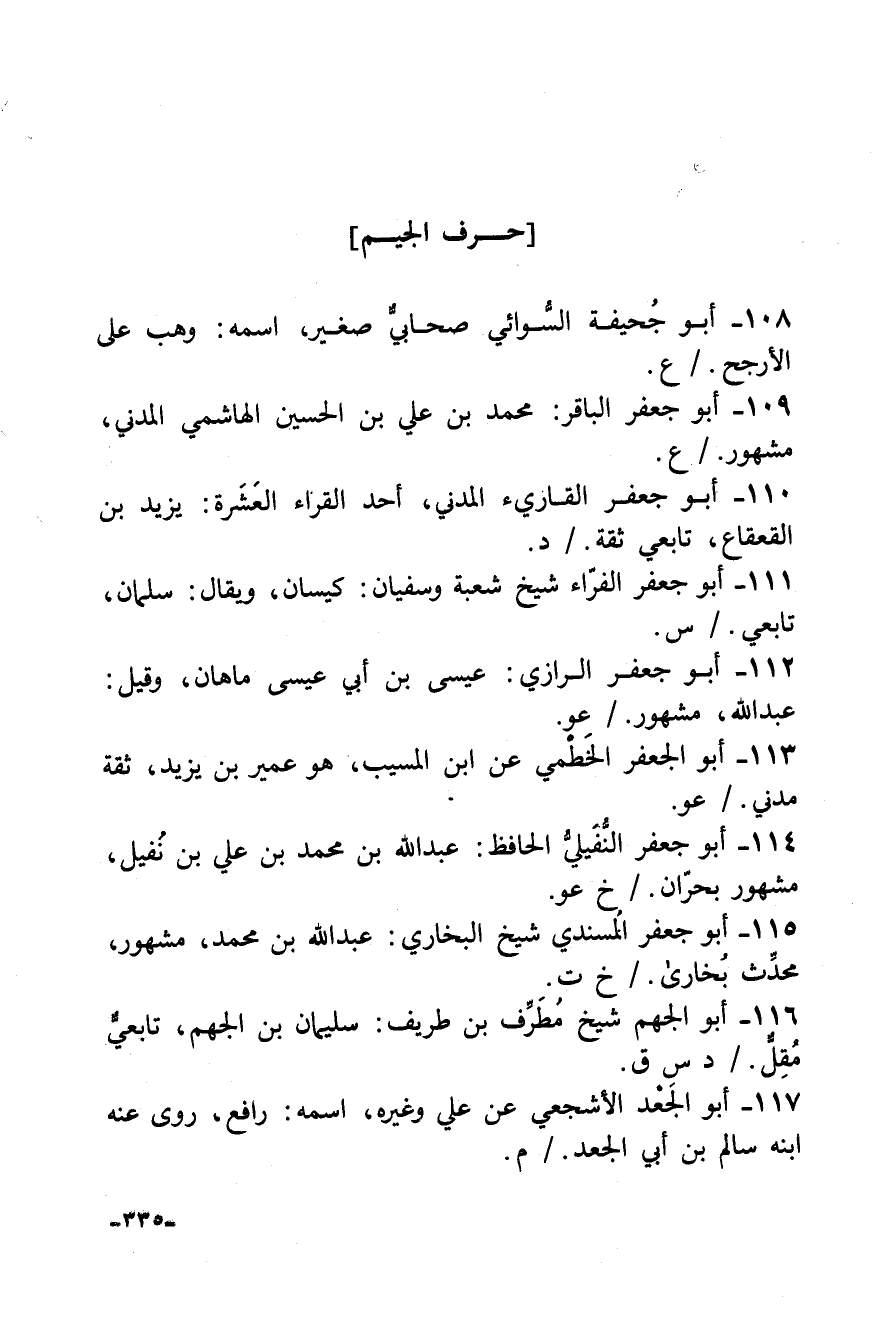 [حـرف الجيـم]
١٠٨ـ أبـو جُحيفـة السُّـوائي صحـابيٌّ صغـير، اسمه: وهب على
الأرجح. / ع.
١٠٩ـ أبو جعفر الباقر: محمد بن علي بن الحسين الهاشمي المدني،
مشهور. / ع.
١١٠ـ أبـو جعفـر القـاريء المدني، أحد القراء العَشَرة: يزيد بن
القعقاع، تابعي ثقة. / د.
١١١ـ أبو جعفر الفرّاء شيخ شعبة وسفيان: كيسان، ويقال: سلمان،
تابعي. / س.
١١٢ـ أبـو جعفـر الـرازي: عيسى بن أبي عيسى ماهان، وقيل:
عبدالله، مشهور. / عو.
١١٣ـ أبو الجعفر الخَطْمي عن ابن المسيب، هو عمير بن يزيد، ثقة
مدني. / عو.
١١٤ـ أبو جعفر النُّفَيليُّ الحافظ: عبدالله بن محمد بن علي بن نُفيل،
مشهور بحرّان. / خ عو.
١١٥ـ أبو جعفر المُسندي شيخ البخاري: عبدالله بن محمد، مشهور،
محدِّث بُخارىٰ. / خ ت.
١١٦ـ أبو الجهم شيخ مُطَرِّف بن طريف: سليمان بن الجهم، تابعيٌّ
مُقِلٌّ. / د س ق.
١١٧ـ أبو الجَعْد الأشجعي عن علي وغيره، اسمه: رافع، روى عنه
ابنه سالم بن أبي الجعد. / م.
ـ٣٣٥ـ